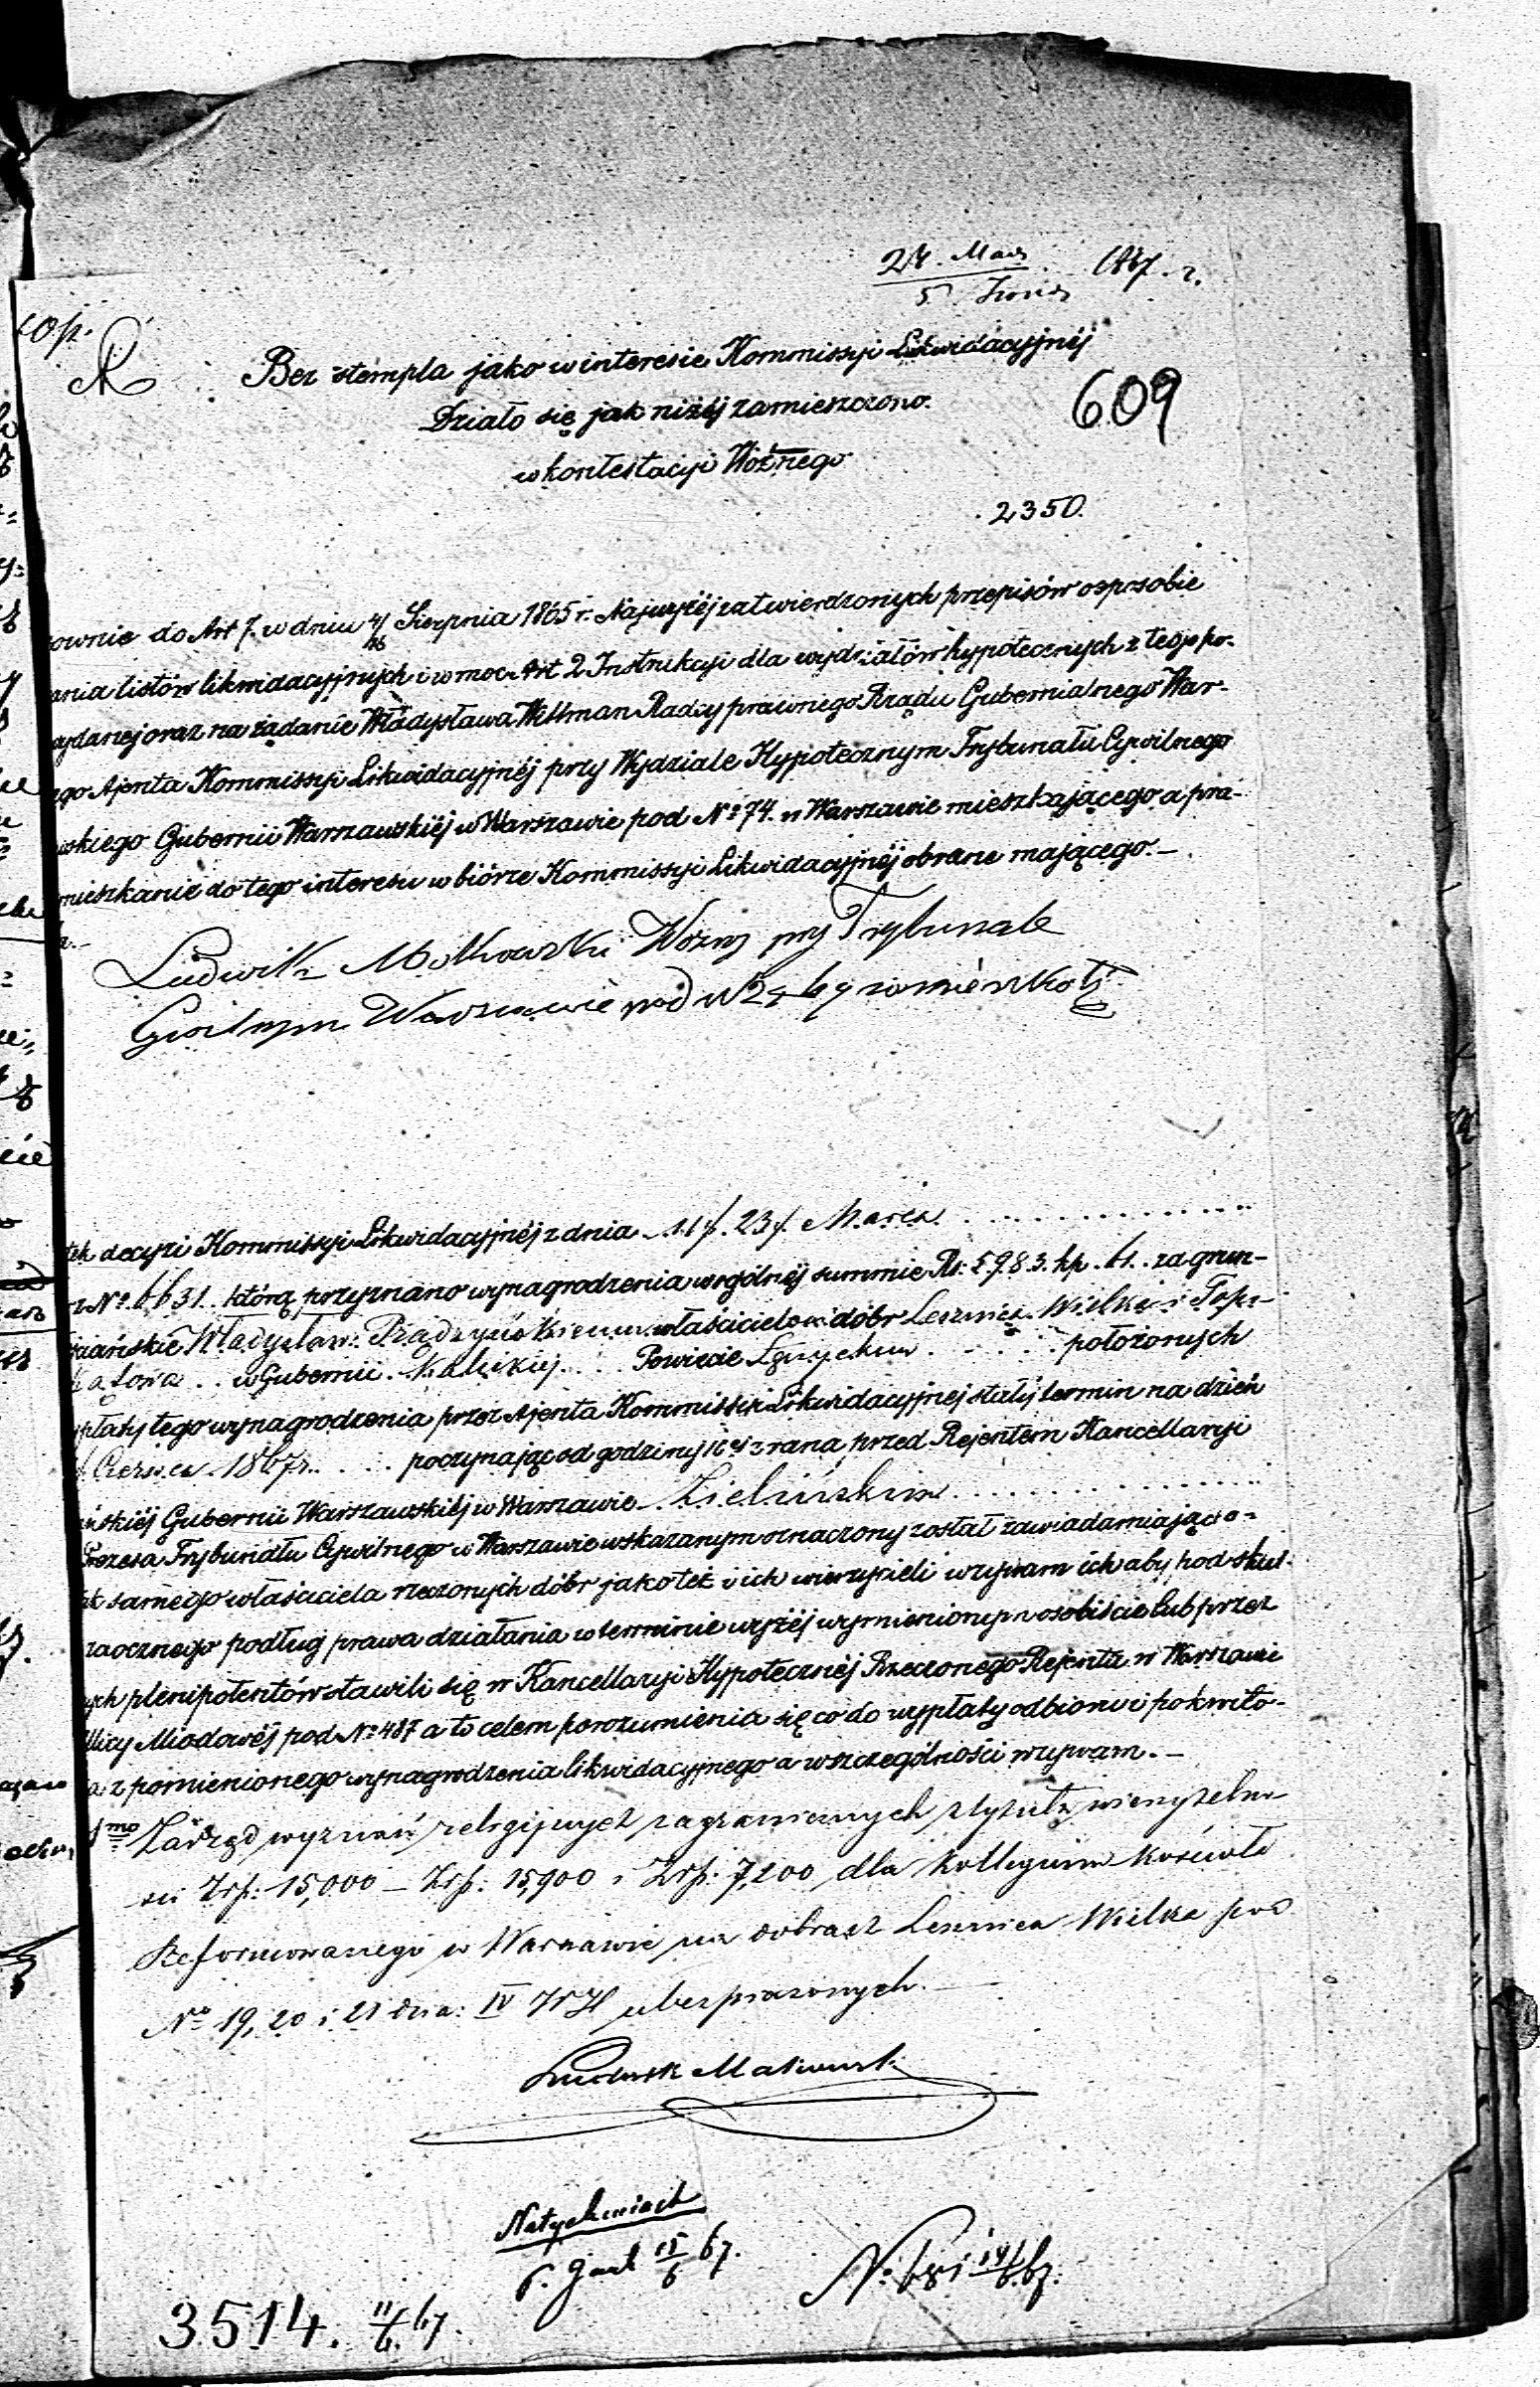 24. Maja
5. Czerw. 1867. r.
cop.
Bez stempla jako w interesie Kommissyi Likwidacyjnéj
609
Działo się jak niżéj zamieszczono.
w kontestacyi Woźnego
2350.
ownie do Art 7. w dniu 4/16 Sierpnia 1865 r. Najwyżéj zatwierdzonych przepisów o sposobie
ania listów likwidacyjnych i w moc Art 2 Instrukcyi dla wydziałów hypotecznych z tego po-
ydanej oraz na żądanie Władysława Wittman Radcy prawnego Rządu Gubernialnego War-
ego Ajenta Kommissyi Likwidacyjnéj przy Wydziale Hypotecznym Trybunału Cywilnego
wskiego Gubernii Warszawskiéj w Warszawie pod Nº 74. w Warszawie mieszkającego a pra-
mieszkanie do tego interesu w biórze Kommissyi Likwidacyjnéj obrane mającego.—
Ludwik Woźny przy Trybunale
Cywilnym Warszawie pod N zamieszkały
tek decyzi Kommissyi Likwidacyjnéj z dnia 11/. 23/. Marca
z Nº. 6631. którą przyznano wynagrodzenia w ogólnéj summie Rs: 5983. kp. 61. za grun-
ściańskie Władysław. Prądzyńskiemu właścicielowi dóbr Leźnica Wielka i Topo-
w Gubernii Kaliskiej Powiecie Łęczyckim położonych
płaty tego wynagrodzenia przez Ajenta Kommissyi Likwidacyjnej stały termin na dzień
Czerwca 1867 r. poczynając od godziny 10éj z rana, przed Rejentem Kancellaryi
ańskiéj Gubernii Warszawskiéj w Warszawie Zielińskim
Prezesa Trybunału Cywilnego w Warszawie wskazanym oznaczony został zawiadamiając o-
ak samego właściciela rzeczonych dóbr jako też i ich wierzycieli wzywam ich aby pod skut-
zaocznego podług prawa działania w terminie wyżéj wymienionym osobiście lub przez
ych plenipotentów stawili się w Kancellaryi Hypotecznéj Rzeczonego Rejenta w Warszawie
Ulicy Miodowéj pod Nº 487 a to celem porozumienia się co do wypłaty odbioru i pokwito-
a z pomienionego wynagrodzenia likwidacyjnego a w szczególności wzywam.—
1mo Zarząd wyznań religijnych zagranicznych z tytułu wierzytelno-
ści Złp: 15,000 — Złp: 15,900 i Złp: 7,200 dla Kollegium Kościoła
Reformowanego w Warszawie na dobrach Leźnica Wielka pod
Nº 19, 20 i 21 dzia: IV WH ubezpieczonych.—
Ludwik
Natychmiast
15/6 67.
3514. 11/6. 67.